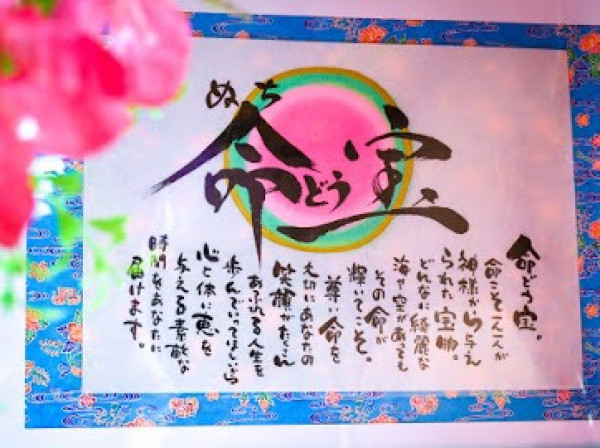 ぬち
命どう宝
命どう宝。
命こそ一人一人が
神様から与え
られた宝物。
どんなに綺麗な
海や空があっても
その命が
輝いてこそ。
尊い命を
大切にあなたの
笑顔がたくさん
あふれる人生を
歩んでいってほしいから
心と体に恵を
与える素敵な
時間をあなたに
届けます。